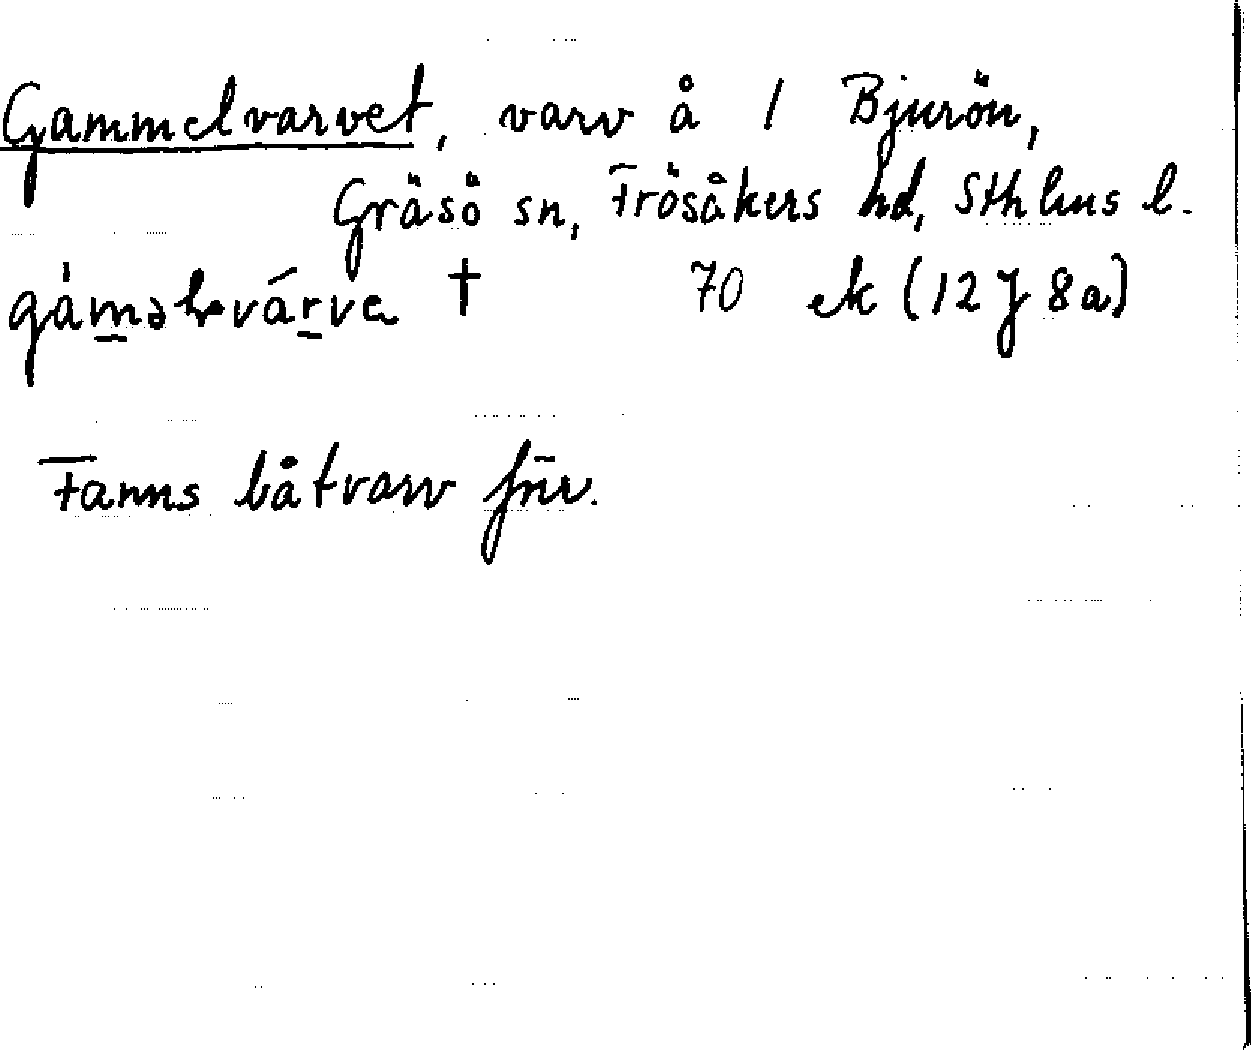 Gammelvarvet, varv å 1 Bjurön,
Gräsö sn, Frösåkers hd, Sthlms l.
† 70 ek (12 J 8a)
Fanns båtvarv förr.